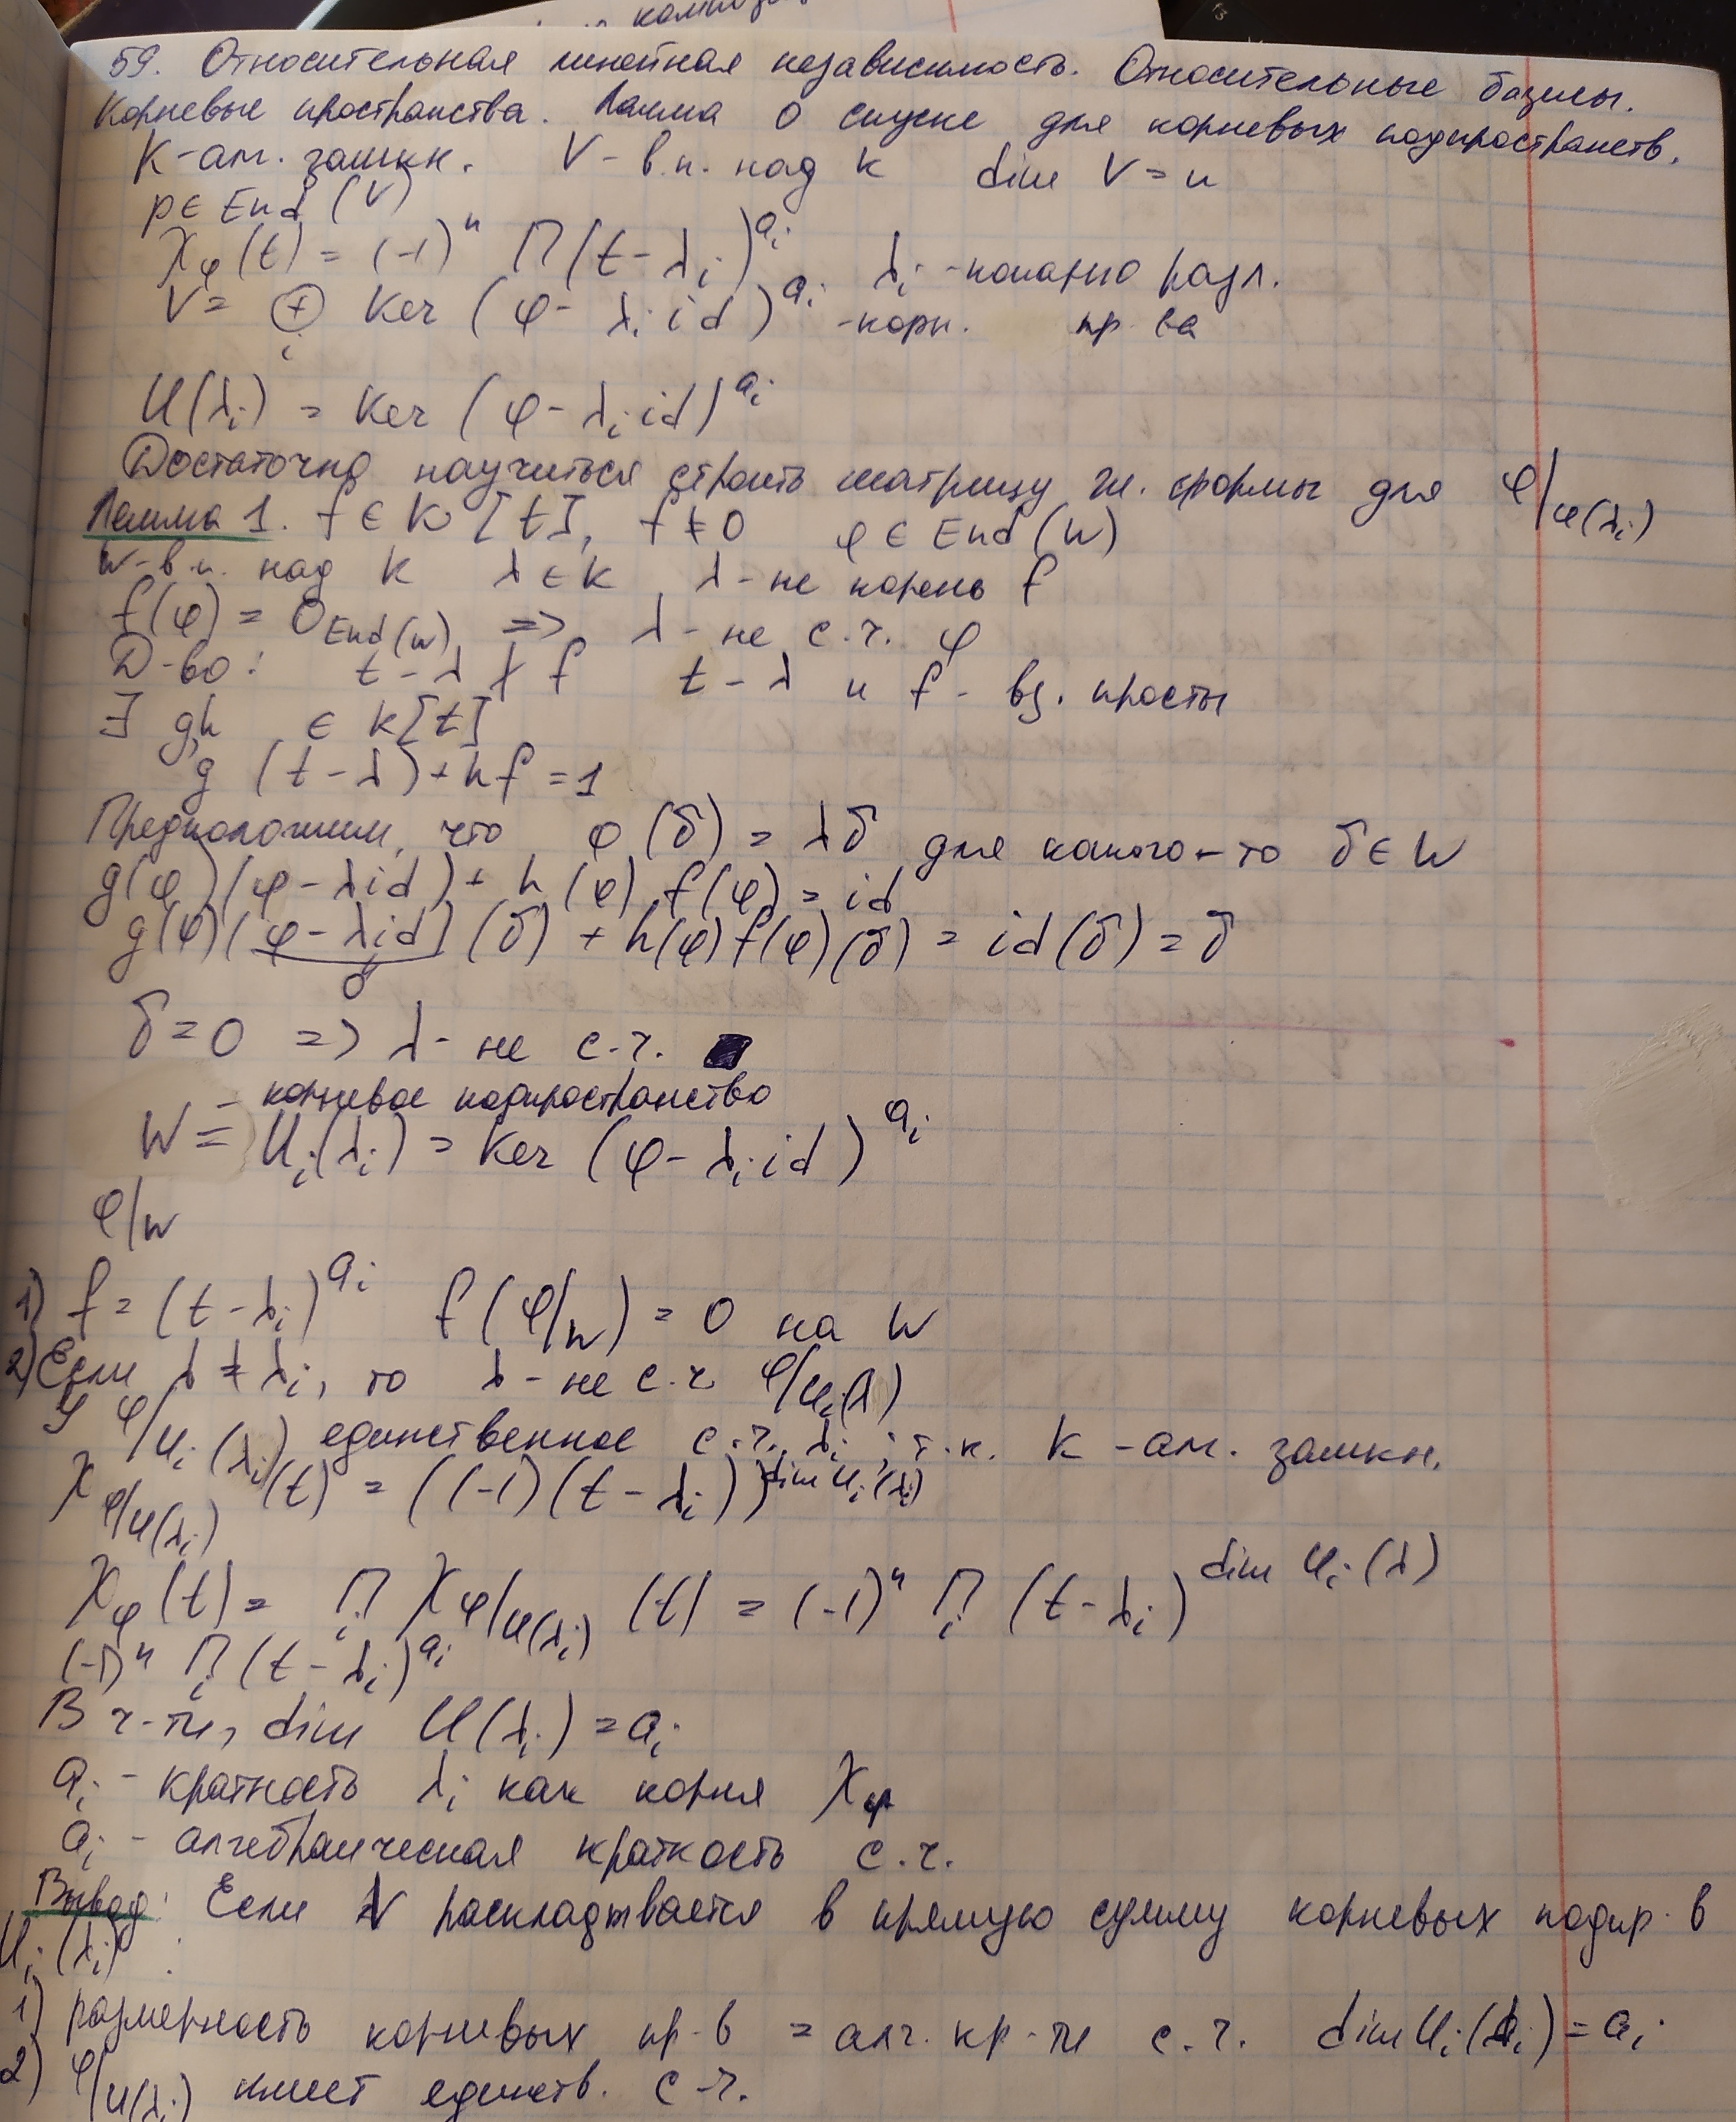 композ
59. Относительная линейная независимость. Относительные базисы.
Корневые пространства. Лемма о спуске для корневых подпространств.
K-алг. замкн. V - в.п. над K dim V = n
φ ∈ End (V)
χ_φ(t) = (-1)^n ∏(t - λ_i)^{a_i} λ_i - попарно разл.
V = ⊕_i Ker (φ - λ_i id)^{a_i} - корн. пр-ва
U(λ_i) = Ker (φ - λ_i id)^{a_i}
Достаточно научиться строить матрицу ж. формы для φ|_{U(λ_i)}
Лемма 1. f ∈ K[t], f ≠ 0 φ ∈ End(W)
W - в.п. над K λ ∈ K, λ - не корень f
f(φ) = 0_{End(W)} => λ - не с.ч. φ
Д-во: t - λ ∤ f t - λ и f - вз. просты
∃ g,h ∈ K[t]
g (t - λ) + hf = 1
Предположим, что φ(v̄) = λv̄ для какого-то v̄ ∈ W
g(φ)(φ - λid) + h(φ) f(φ) = id
g(φ)(φ - λid)(v̄) + h(φ)f(φ)(v̄) = id(v̄) = v̄
0
v̄ = 0 => λ - не с.ч. ■
- корневое подпространство
W = U_i(λ_i) = Ker (φ - λ_i id)^{a_i}
φ|_W
1) f = (t - λ_i)^{a_i} f(φ|_W) = 0 на W
2) Если λ ≠ λ_i, то λ - не с.ч. φ|_{U_i(λ)}
У φ|_{U_i(λ_i)} единственное с.ч. λ_i, т.к. K - алг. замкн.
χ_{φ|_{U(λ_i)}}(t) = ((-1)(t - λ_i))^{dim U_i(λ_i)}
χ_φ(t) = ∏_i χ_{φ|_{U(λ_i)}}(t) = (-1)^n ∏_i (t - λ_i)^{dim U_i(λ)}
(-1)^n ∏_i (t - λ_i)^{a_i}
В ч-ти, dim U(λ_i) = a_i
a_i - кратность λ_i как корня χ_φ
a_i - алгебраическая кратность с.ч.
Вывод: Если V раскладывается в прямую сумму корневых подпр-в
U_i(λ_i) :
1) размерность корневых пр-в = алг. кр-ти с.ч. dim U_i(λ_i) = a_i
2) φ|_{U(λ_i)} имеет единств. с.ч.